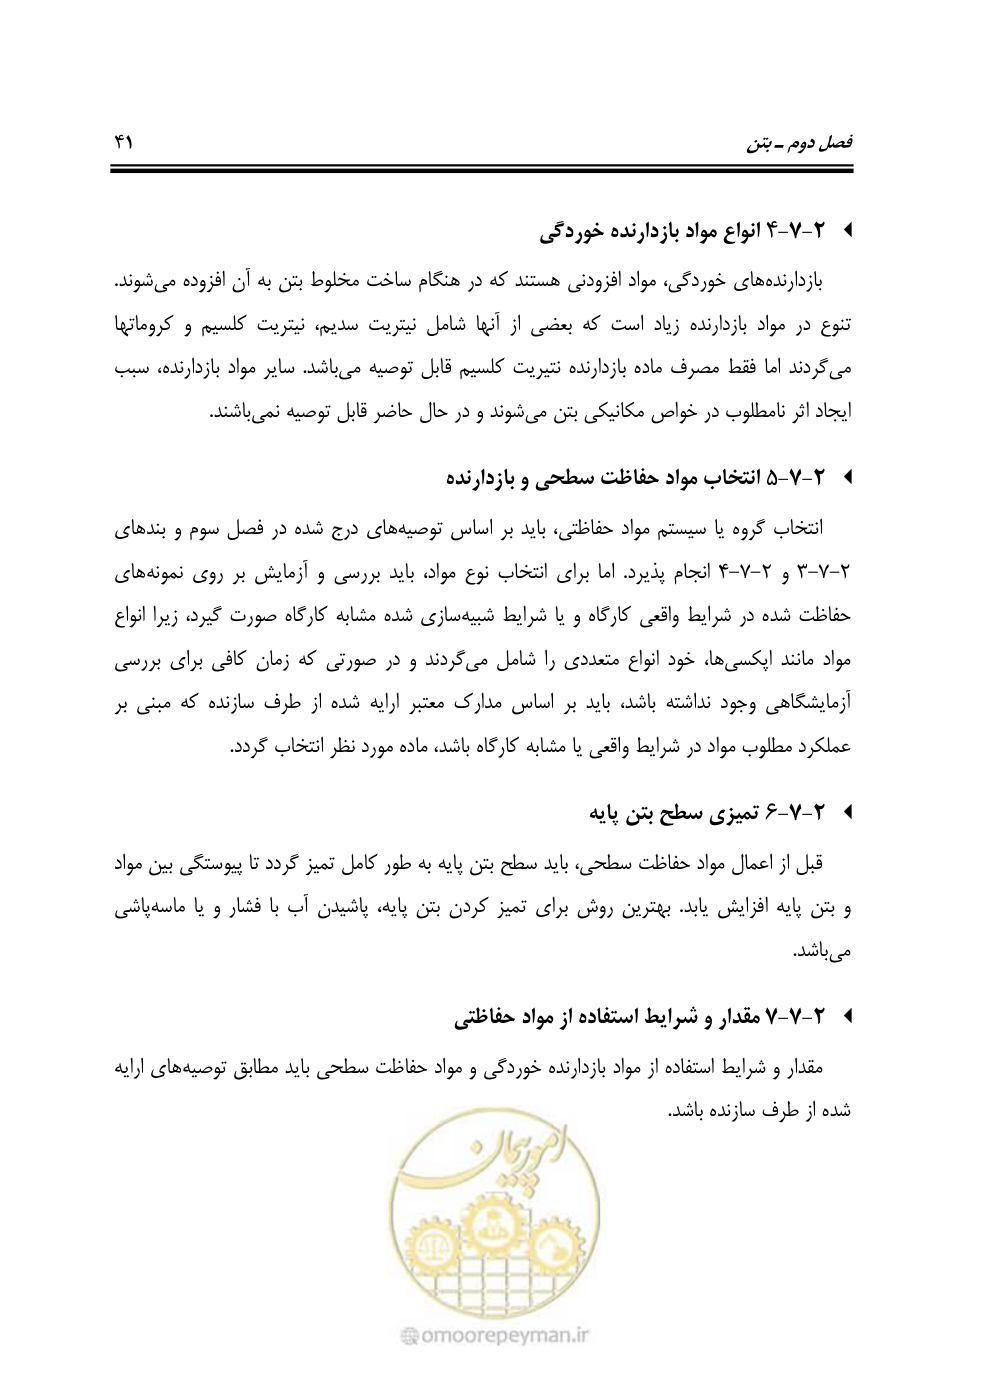 فصل دوم ـ بتن ۴۱
۲-۷-۴ انواع مواد بازدارنده خوردگی
بازدارنده‌های خوردگی، مواد افزودنی هستند که در هنگام ساخت مخلوط بتن به آن افزوده می‌شوند.
تنوع در مواد بازدارنده زیاد است که بعضی از آنها شامل نیتریت سدیم، نیتریت کلسیم و کروماتها
می‌گردند اما فقط مصرف ماده بازدارنده نتیریت کلسیم قابل توصیه می‌باشد. سایر مواد بازدارنده، سبب
ایجاد اثر نامطلوب در خواص مکانیکی بتن می‌شوند و در حال حاضر قابل توصیه نمی‌باشند.
۲-۷-۵ انتخاب مواد حفاظت سطحی و بازدارنده
انتخاب گروه یا سیستم مواد حفاظتی، باید بر اساس توصیه‌های درج شده در فصل سوم و بندهای
۲-۷-۳ و ۲-۷-۴ انجام پذیرد. اما برای انتخاب نوع مواد، باید بررسی و آزمایش بر روی نمونه‌های
حفاظت شده در شرایط واقعی کارگاه و یا شرایط شبیه‌سازی شده مشابه کارگاه صورت گیرد، زیرا انواع
مواد مانند اپکسی‌ها، خود انواع متعددی را شامل می‌گردند و در صورتی که زمان کافی برای بررسی
آزمایشگاهی وجود نداشته باشد، باید بر اساس مدارک معتبر ارایه شده از طرف سازنده که مبنی بر
عملکرد مطلوب مواد در شرایط واقعی یا مشابه کارگاه باشد، ماده مورد نظر انتخاب گردد.
۲-۷-۶ تمیزی سطح بتن پایه
قبل از اعمال مواد حفاظت سطحی، باید سطح بتن پایه به طور کامل تمیز گردد تا پیوستگی بین مواد
و بتن پایه افزایش یابد. بهترین روش برای تمیز کردن بتن پایه، پاشیدن آب با فشار و یا ماسه‌پاشی
می‌باشد.
۲-۷-۷ مقدار و شرایط استفاده از مواد حفاظتی
مقدار و شرایط استفاده از مواد بازدارنده خوردگی و مواد حفاظت سطحی باید مطابق توصیه‌های ارایه
شده از طرف سازنده باشد.
امور پیمان
@omoorepeyman.ir